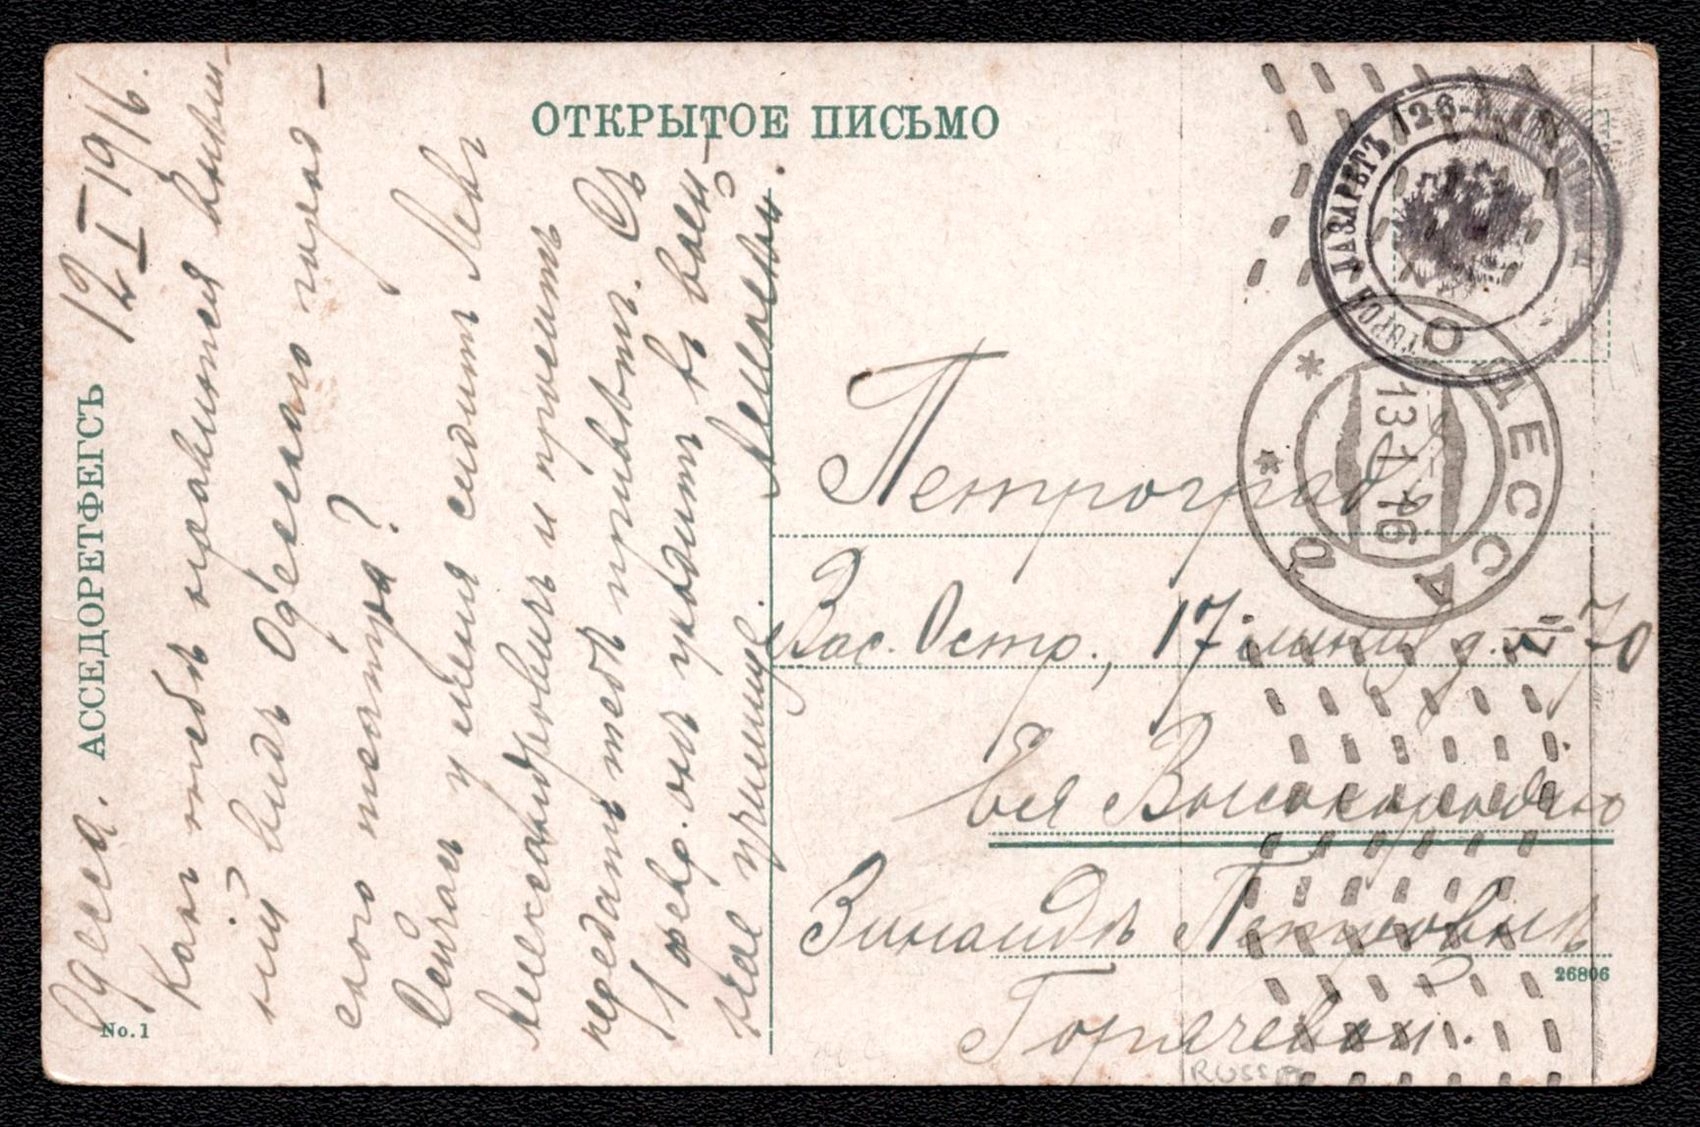 ОТКРЫТОЕ ПИСЬМО
АССЕДОРЕТФЕГСЪ
No. 1
Одесса. 12 I 1916.
Какъ тебѣ нравится внѣш-
ній видъ Одесскаго город-
ского театра?
Сейчас у меня сидитъ Левъ
Александровичъ и проситъ
передать тебѣ привѣтъ. Съ
1 февр. онъ уходитъ въ воен-
ное училище.
Петроград
Вас. Остр., 17 линія д. 70
Ея Высокородію
Зинаидѣ Петровнѣ
Горячевой.
26806
ЛАЗАРЕТЪ 126-й
ОДЕССА
13-1-16
RUSSIA